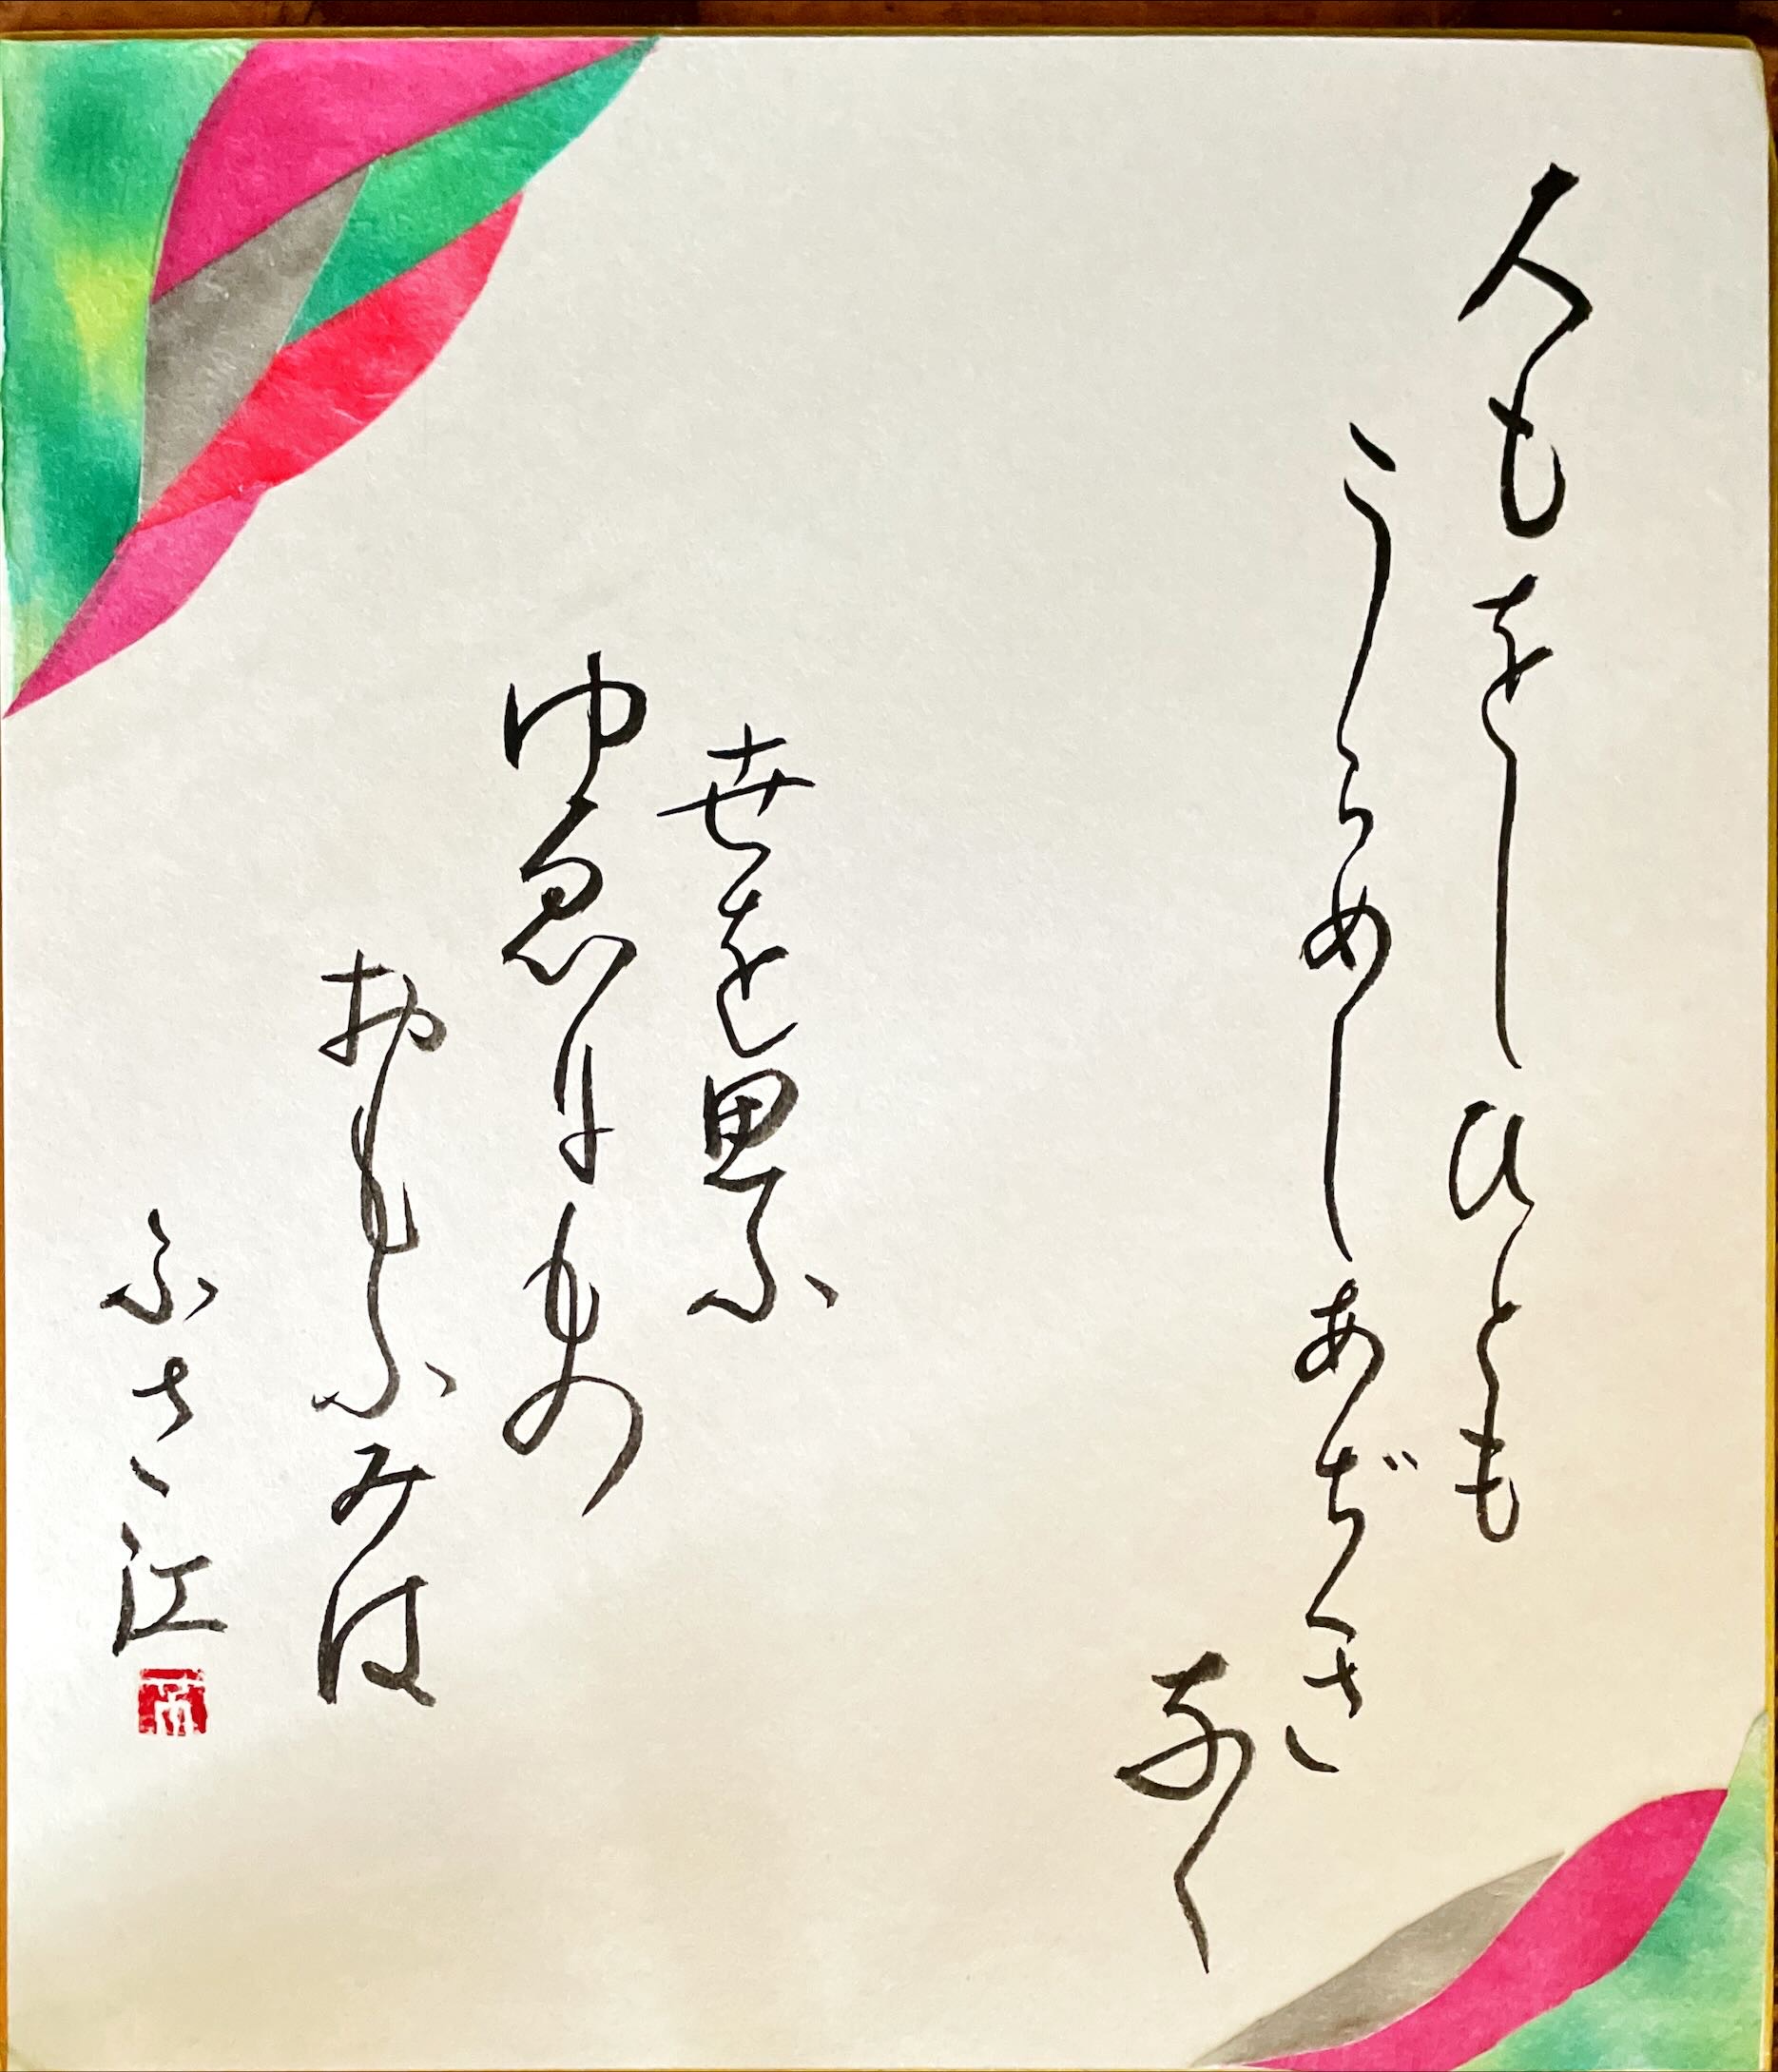 人もをしひとも
うらめしあぢきさ
なく
世を思ふ
ゆゑにもの
おもふみは
ふさ江